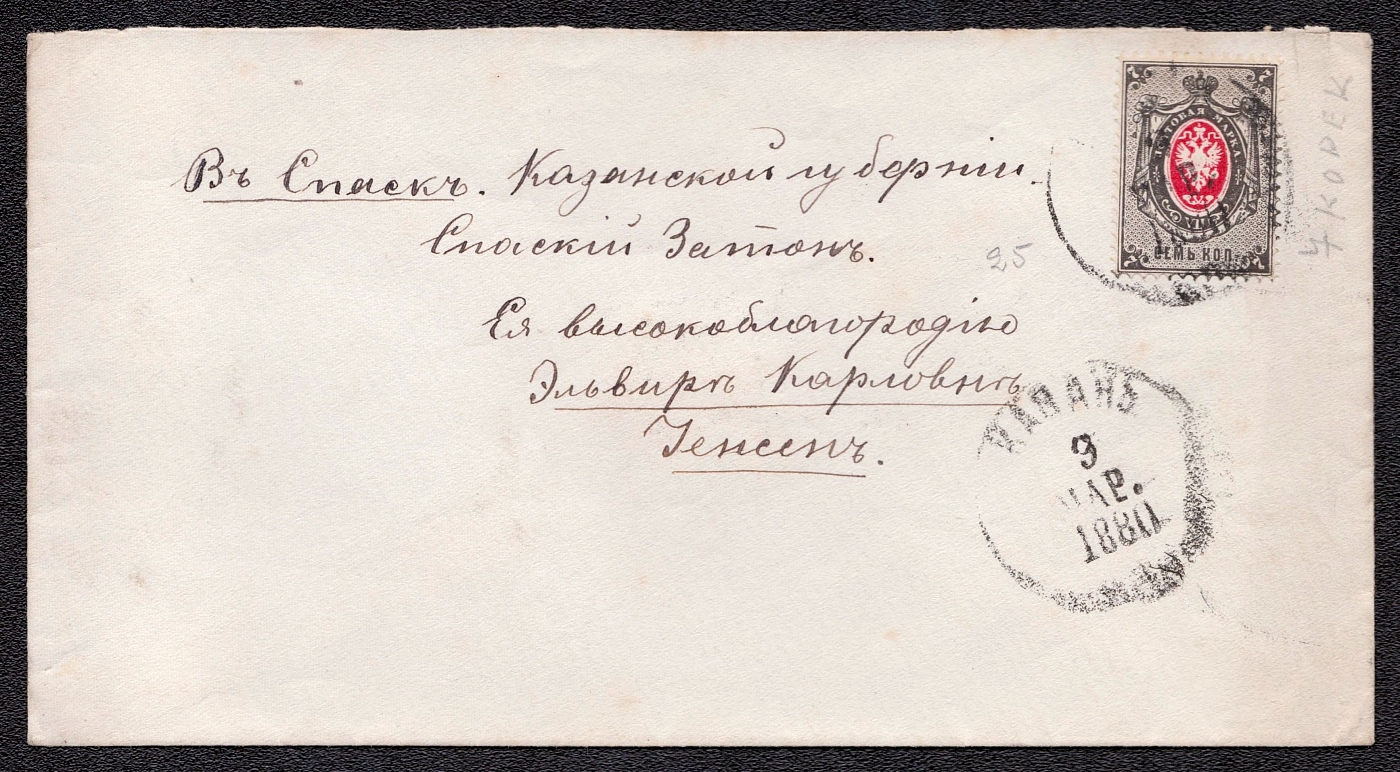 Въ Спаскъ. Казанской губерніи.
Спаскій Затонъ.
25
Ея высокоблагородію
Эльвирѣ Карловнѣ
Іенсенъ.
7
7
ПОЧТОВАЯ МАРКА
СЕМЬ КОП.
7 KOPEK
КАЗАНЬ
3
МАР.
1880